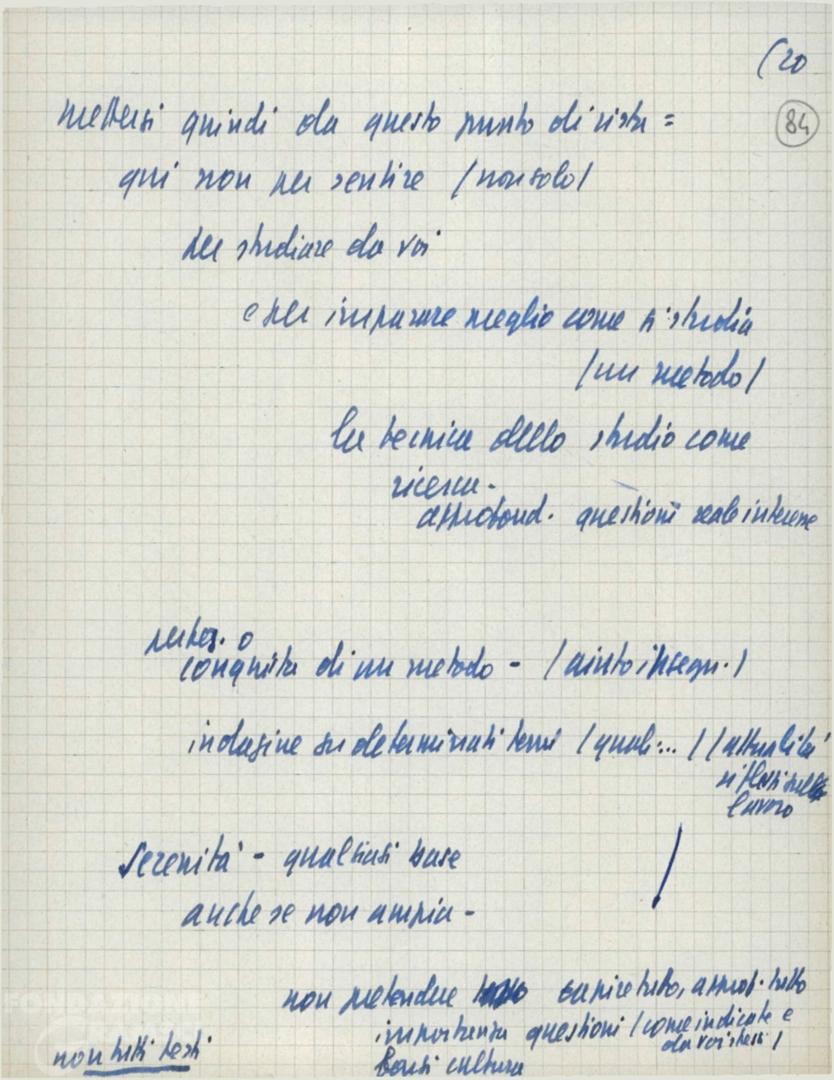 (20
84
mettersi quindi da questo punto di vista =
qui non per sentire /non solo/
per studiare da voi
e per imparare meglio come si studia
/un metodo/
la tecnica dello studio come
ricerca -
approfond. questioni reale interesse
conquista di un metodo - /aiuto insegn./
indagine su determinati temi /quali... / /attualità
riflessi sul
lavoro
Serenità - qualsiasi base
anche se non ampia -
non pretendere capire tutto, approf. tutto
importanza questioni /come indicate e
da voi stessi/
non tutti testi
cultura